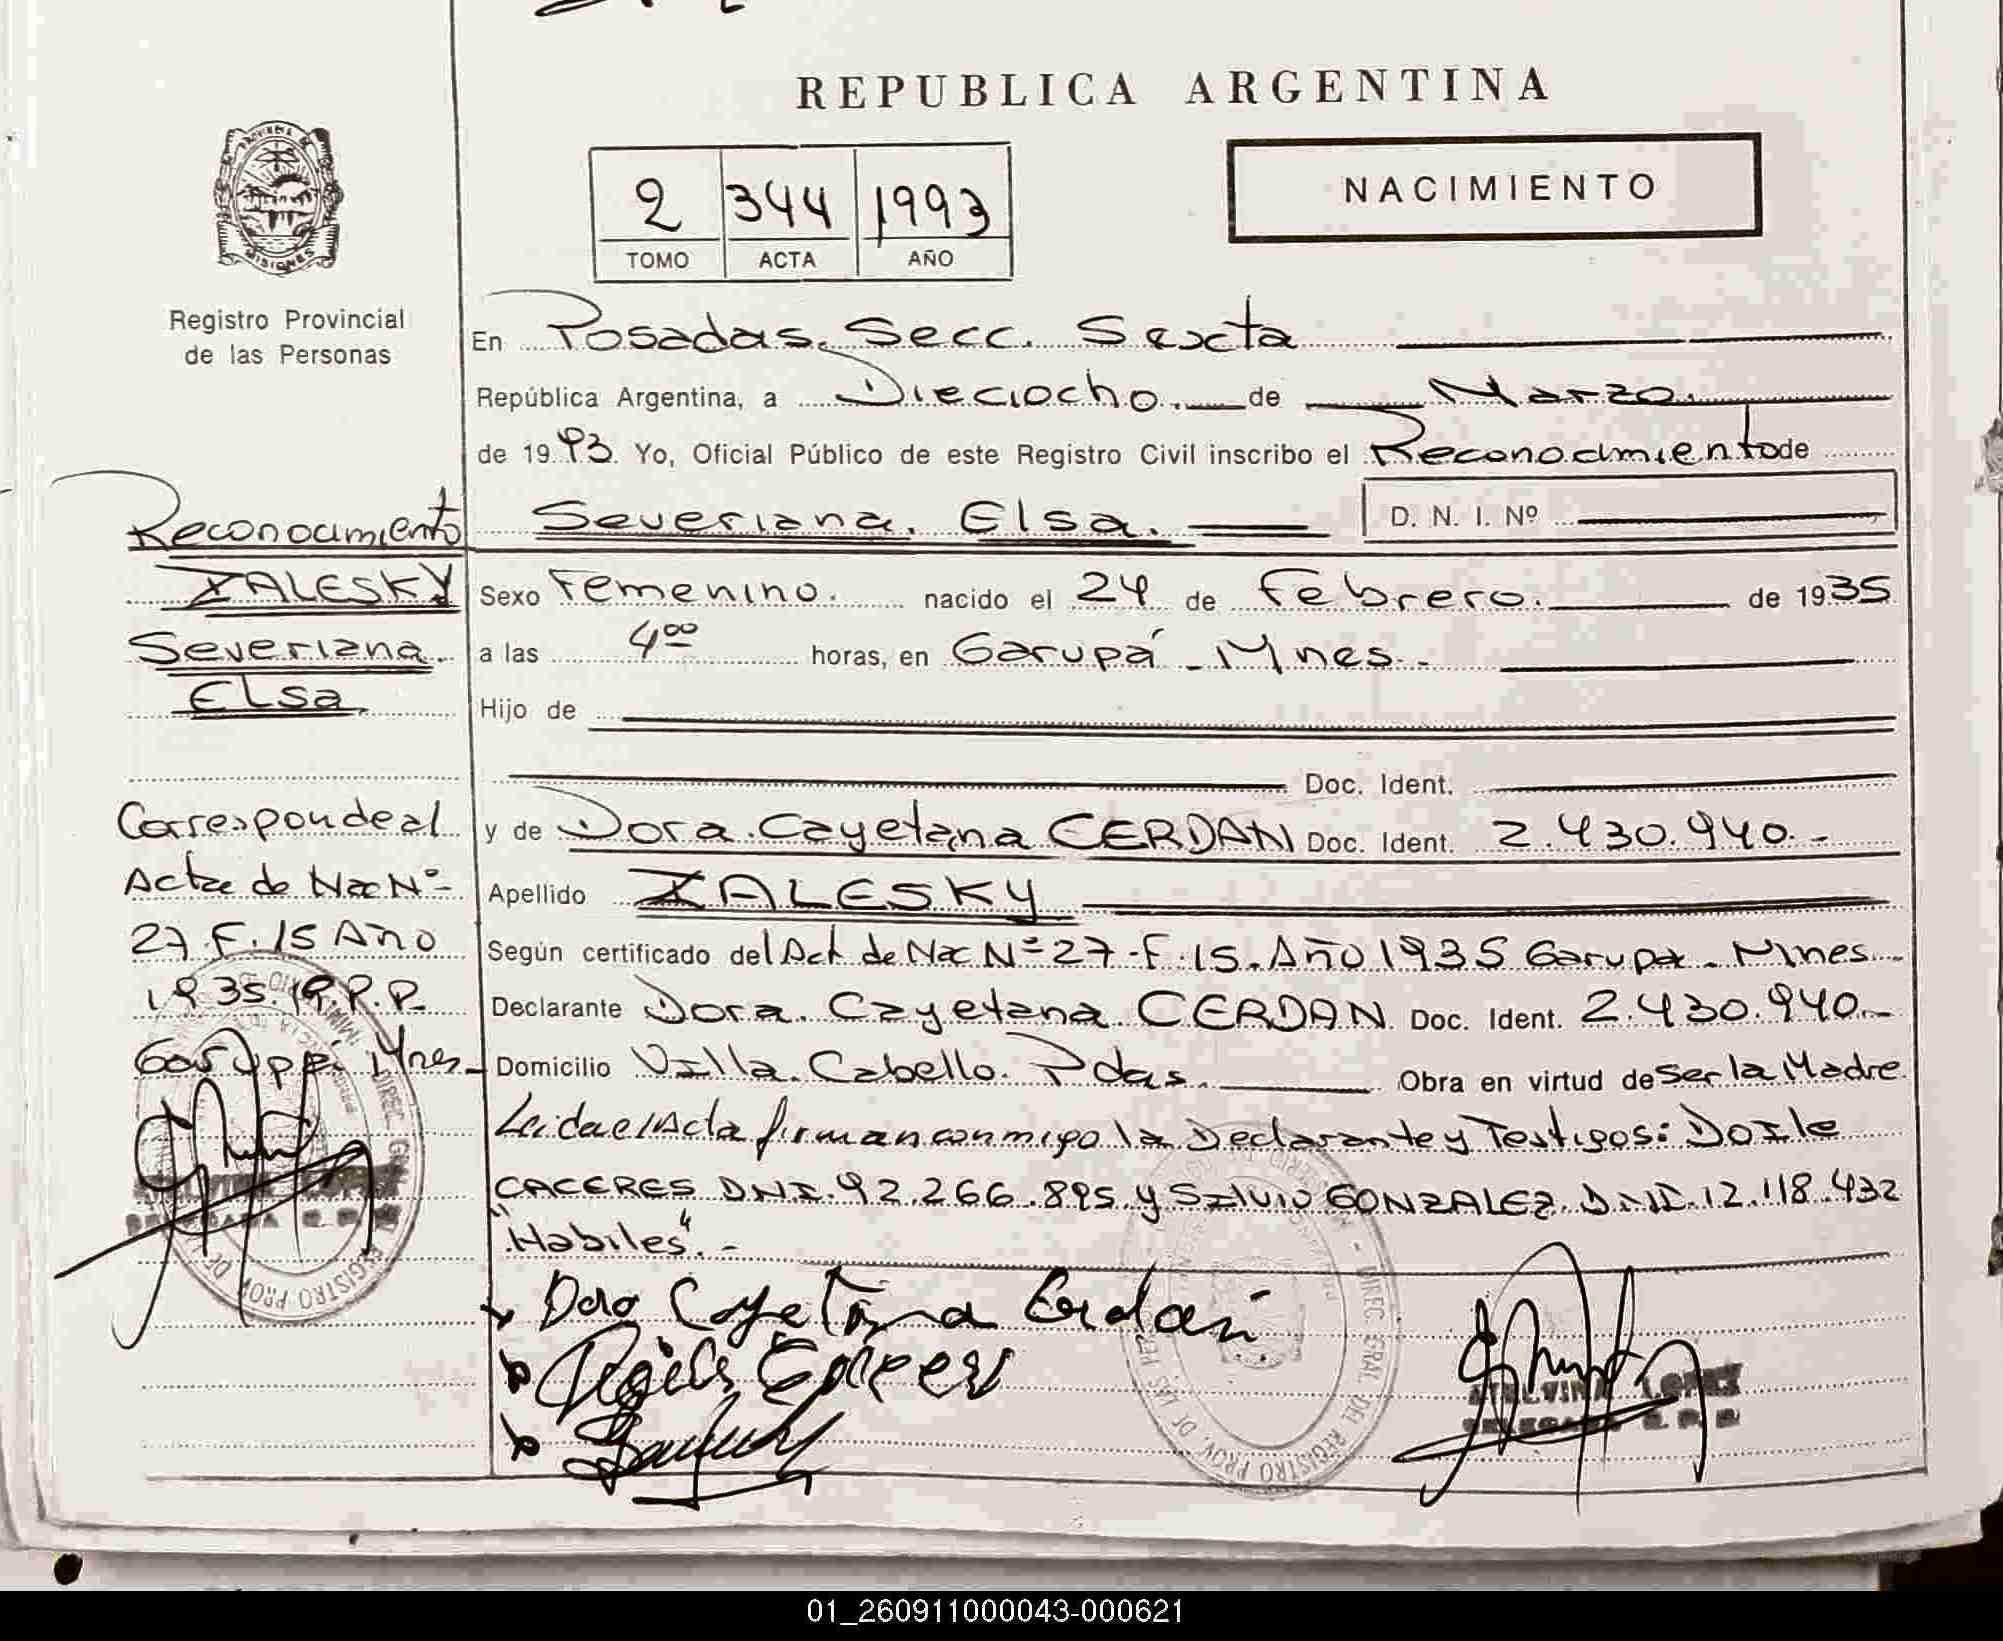 REPUBLICA ARGENTINA
PROVINCIA DE
MISIONES
Registro Provincial
de las Personas
2 344 1993
TOMO ACTA AÑO
NACIMIENTO
En Posadas. Secc. Sexta
República Argentina, a Dieciocho. de Marzo.
de 1993. Yo, Oficial Público de este Registro Civil inscribo el Reconocimiento de
Severiana. Elsa. D. N. I. Nº
Sexo Femenino. nacido el 24 de Febrero. de 1935
a las 4⁰⁰ horas, en Garupá - Mnes.
Hijo de
Doc. Ident.
y de Dora. Cayetana CERDAN Doc. Ident. 2.430.940.-
Apellido ZALESKY
Según certificado del Act de Nac Nº 27-F.15. Año 1935 Garupa. Mnes.
Declarante Dora. Cayetana. CERDAN. Doc. Ident. 2.430.940.-
Domicilio Villa. Cabello. Pdas. Obra en virtud de Ser la Madre.
Leida el Acta firman conmigo la Declarante y Testigos: Dozle
CACERES DNI. 92.266.895 y Silvio GONZALEZ. DNI. 12.118.432
"Habiles".-
Reconocimiento
ZALESKY
Severiana.
Elsa.
Corresponde al
Acta de Nac Nº-
27.F.15 Año
1935.
Garupá. Mnes-
Cayetana Cerdan
LOPEZ
DIREC. GRAL. DEL REGISTRO PROV. DE LAS PER
01_260911000043-000621